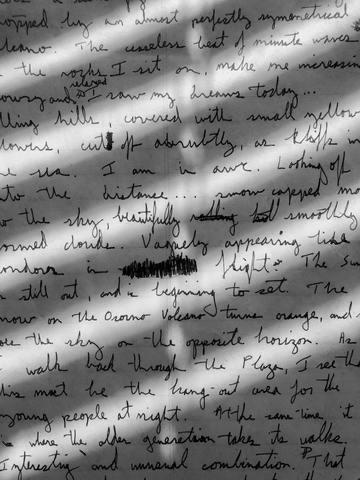 topped by an almost perfectly symmetrical
The ceaseless beat of minute waves
the rocks I sit on, make me increasin
relaxed
and I saw my dreams today...
lling hills, covered with small yellow
lowers, cut off abruptly, as cliffs in
he sea. I am in awe. Looking off
nto the distance... snow capped m
the sky, beautifully smoothly
ormed clouds. Vaguely appearing like
ondors in flight. The sun
still out, and is beginning to set. The
now on the Osorno Volcano turns orange, and
the sky on the opposite horizon. As
walk back through the Plaza, I see tha
his must be the hang-out area for the
young people at night. At the same time it
is where the older generation takes its walks.
Interesting and unusual combination. That